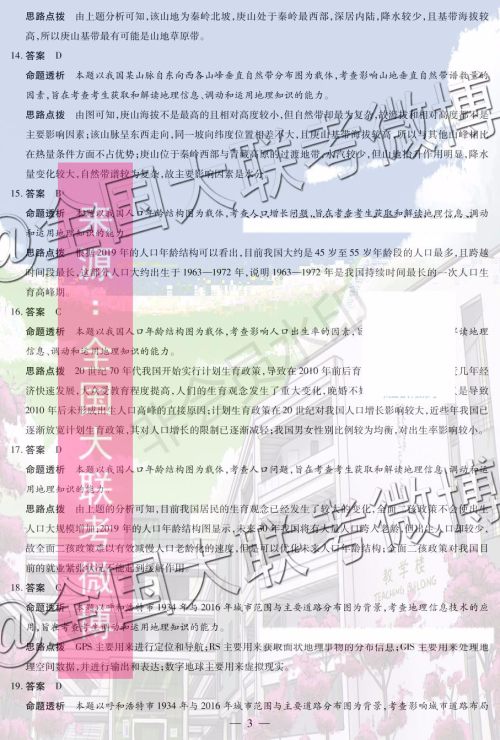 思路点拨　由上题分析可知,该山地为秦岭北坡,庚山处于秦岭最西部,深居内陆,降水较少,且基带海拔较
高,所以庚山基带最有可能是山地草原带。
14. 答案　D
命题透析　本题以我国某山脉自东向西各山峰垂直自然带分布图为载体,考查影响山地垂直自然带谱数量的
因素,旨在考查考生获取和解读地理信息、调动和运用地理知识的能力。
思路点拨　由图可知,庚山海拔不是最高的且相对高度较小,但自然带却最为复杂,故海拔和相对高度都不是
主要影响因素;该山脉呈东西走向,同一坡向纬度位置相差不大,且庚山基带海拔较高,所以与其他山峰相比
在热量条件方面不占优势;庚山位于秦岭西部与青藏高原的过渡地带,水汽较少,但山地抬升作用明显,降水
量变化较大,自然带谱较为复杂,故主要影响因素是水分。
15. 答案　B
命题透析　本题以我国人口年龄结构图为载体,考查人口增长问题,旨在考查考生获取和解读地理信息、调动
和运用地理知识的能力。
思路点拨　根据2019年的人口年龄结构可以看出,目前我国大约是45岁至55岁年龄段的人口最多,且跨越
时间段最长,这部分人口大约出生于1963—1972年,说明1963—1972年是我国持续时间最长的一次人口生
育高峰期。
16. 答案　C
命题透析　本题以我国人口年龄结构图为载体,考查影响人口出生率的因素,
解读地理
信息、调动和运用地理知识的能力。
思路点拨　20世纪70年代我国开始实行计划生育政策,导致在2010年前后育
几年经
济快速发展,大众受教育程度提高,人们的生育观念发生了重大变化,晚婚不
是导致
2010年后未形成出生人口高峰的直接原因;计划生育政策在20世纪对我国人口增长影响较大,近些年我国已
逐渐放宽计划生育政策,其对人口增长的限制已逐渐减轻;我国男女性别比例较为均衡,对出生率影响较小。
17. 答案　D
命题透析　本题以我国人口年龄结构图为载体,考查人口问题,旨在考查考生获取和解读地理信息、调动和运
用地理知识的能力。
思路点拨　由上题的分析可知,目前我国居民的生育观念已经发生了较大的变化,全面二孩政策不会使出生
人口大规模增加;2019年的人口年龄结构图显示,未来30年我国将有大量人口跨入老龄,但出生人口却较少,
故全面二孩政策难以有效减慢人口老龄化的速度,但是可以优化未来人口年龄结构;全面二孩政策对我国目
前的就业紧张状况不能起到缓解作用。
18. 答案　C
命题透析　本题以呼和浩特市1934年与2016年城市范围与主要道路分布图为背景,考查地理信息技术的应
用,旨在考查考生调动和运用地理知识的能力。
思路点拨　GPS主要用来进行定位和导航;RS主要用来获取面状地理事物的分布信息;GIS主要用来处理地
理空间数据,并进行输出和表达;数字地球主要用来虚拟现实。
19. 答案　D
命题透析　本题以呼和浩特市1934年与2016年城市范围与主要道路分布图为背景,考查影响城市道路布局
— 3 —
@全国大联考微博
@全国大联考微博
@全国大联考微博
来源：全国大联考微博
教学楼